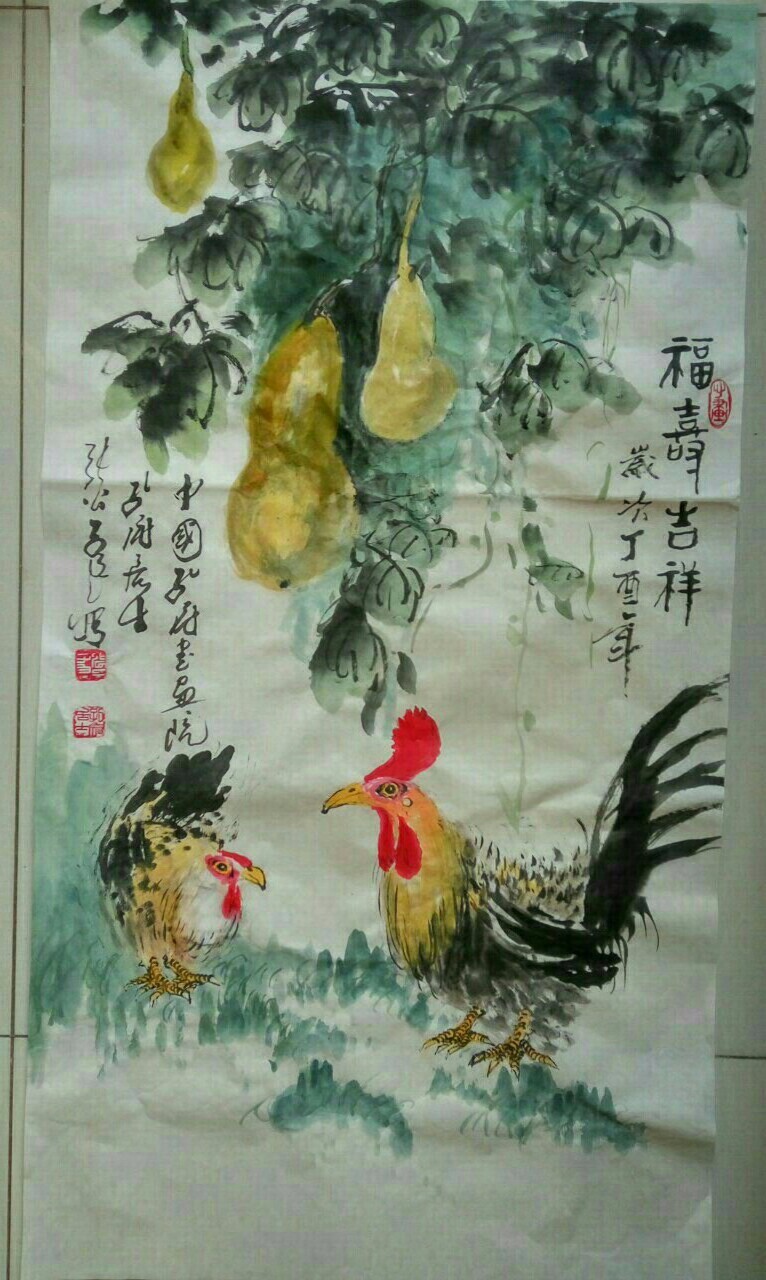 福壽吉祥
歲次丁酉年
中國孔府書畫院
孔府居士